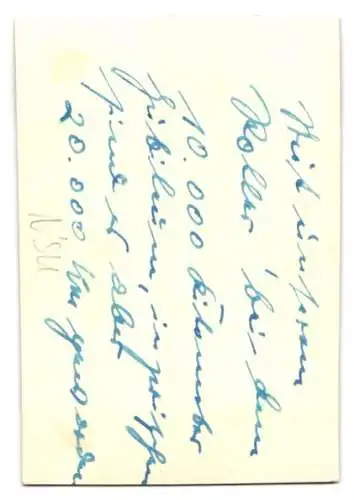 Mit unserem
Roller bei dem
10.000 Kilometer
Jubiläum, inzwischen
sind es aber
20.000 km geworden
NSU